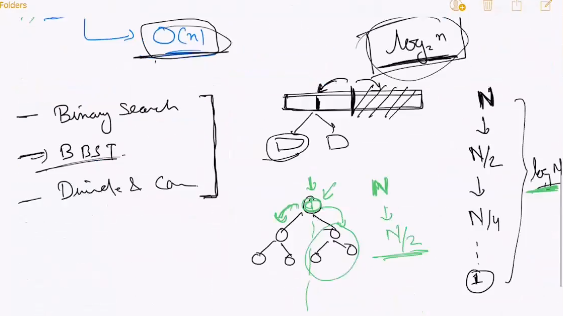 Folders
O(n)
log₂n
— Binary Search
→ BBST
— Divide & Con
N
N/2
N
N/2
N/4
1
log N